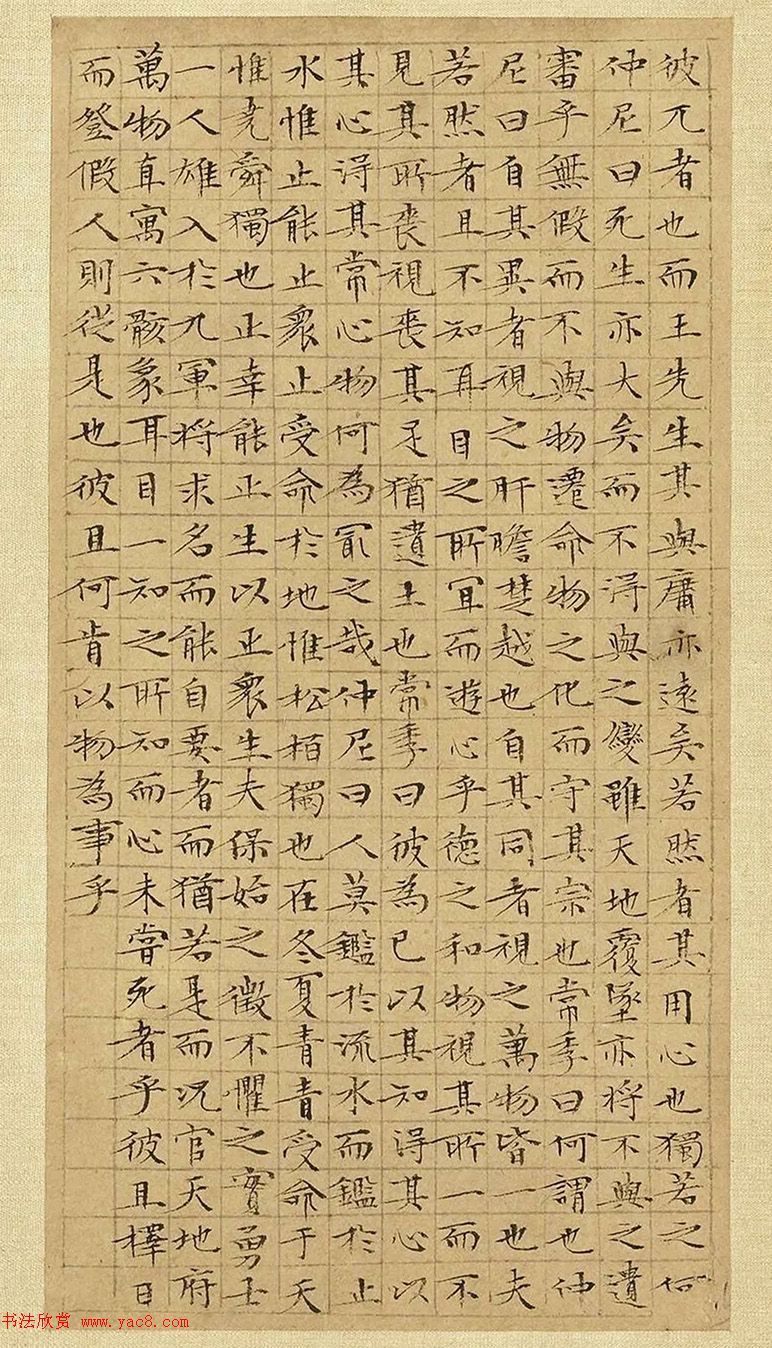 彼兀者也而王先生其與庸亦遠矣若然者其用心也獨若之何
仲尼曰死生亦大矣而不得與之變雖天地覆墜亦將不與之遺
審乎無假而不與物遷命物之化而守其宗也常季曰何謂也仲
尼曰自其異者視之肝膽楚越也自其同者視之萬物皆一也夫
若然者且不知耳目之所宜而遊心乎德之和物視其所一而不
見其所喪視喪其足猶遺土也常季曰彼為己以其知得其心以
其心得其常心物何為冣之哉仲尼曰人莫鑑於流水而鑑於止
水惟止能止眾止受命於地惟松柏獨也在冬夏青青受命于天
惟堯舜獨也正幸能正生以正眾生夫保始之徵不懼之實勇士
一人雄入於九軍將求名而能自要者而猶若是而況官天地府
萬物直寓六骸象耳目一知之所知而心未嘗死者乎彼且擇日
而登假人則從是也彼且何肯以物為事乎
书法欣赏 www.yac8.com